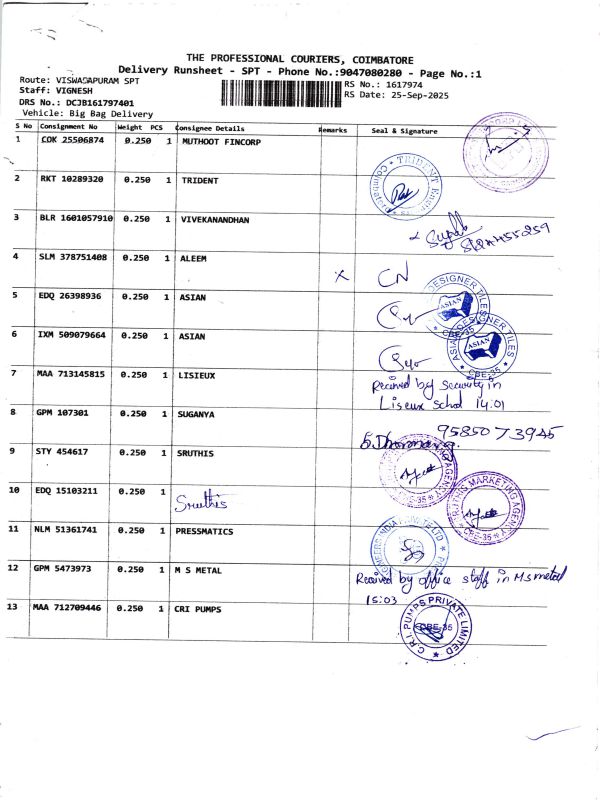 THE PROFESSIONAL COURIERS, COIMBATORE
Delivery Runsheet - SPT - Phone No.:9047080280 - Page No.:1
Route: VISWASAPURAM SPT
RS No.: 1617974
Staff: VIGNESH
RS Date: 25-Sep-2025
DRS No.: DCJB161797401
Vehicle: Big Bag Delivery
S No Consignment No Weight PCS Consignee Details Remarks Seal & Signature
1 COK 25506874 0.250 1 MUTHOOT FINCORP
2 RKT 10289320 0.250 1 TRIDENT
TRIDENT
3 BLR 1601057910 0.250 1 VIVEKANANDHAN
4 SLM 378751408 0.250 1 ALEEM X CN
5 EDQ 26398936 0.250 1 ASIAN
DESIGNER TILES
ASIAN
CBE-35
6 IXM 509079664 0.250 1 ASIAN
ASIAN DESIGNER TILES
ASIAN
CBE-35
7 MAA 713145815 0.250 1 LISIEUX
Received by security in
Liseux School 14:01
8 GPM 107301 0.250 1 SUGANYA
9585073945
9 STY 454617 0.250 1 SRUTHIS
CBE-35
10 EDQ 15103211 0.250 1 Sruthis
MARKETING AGENCY
CBE-35
11 NLM 51361741 0.250 1 PRESSMATICS
12 GPM 5473973 0.250 1 M S METAL
Received by office staff in Ms metal
15:03
13 MAA 712709446 0.250 1 CRI PUMPS
C.R.I. PUMPS PRIVATE LIMITED
CBE-35